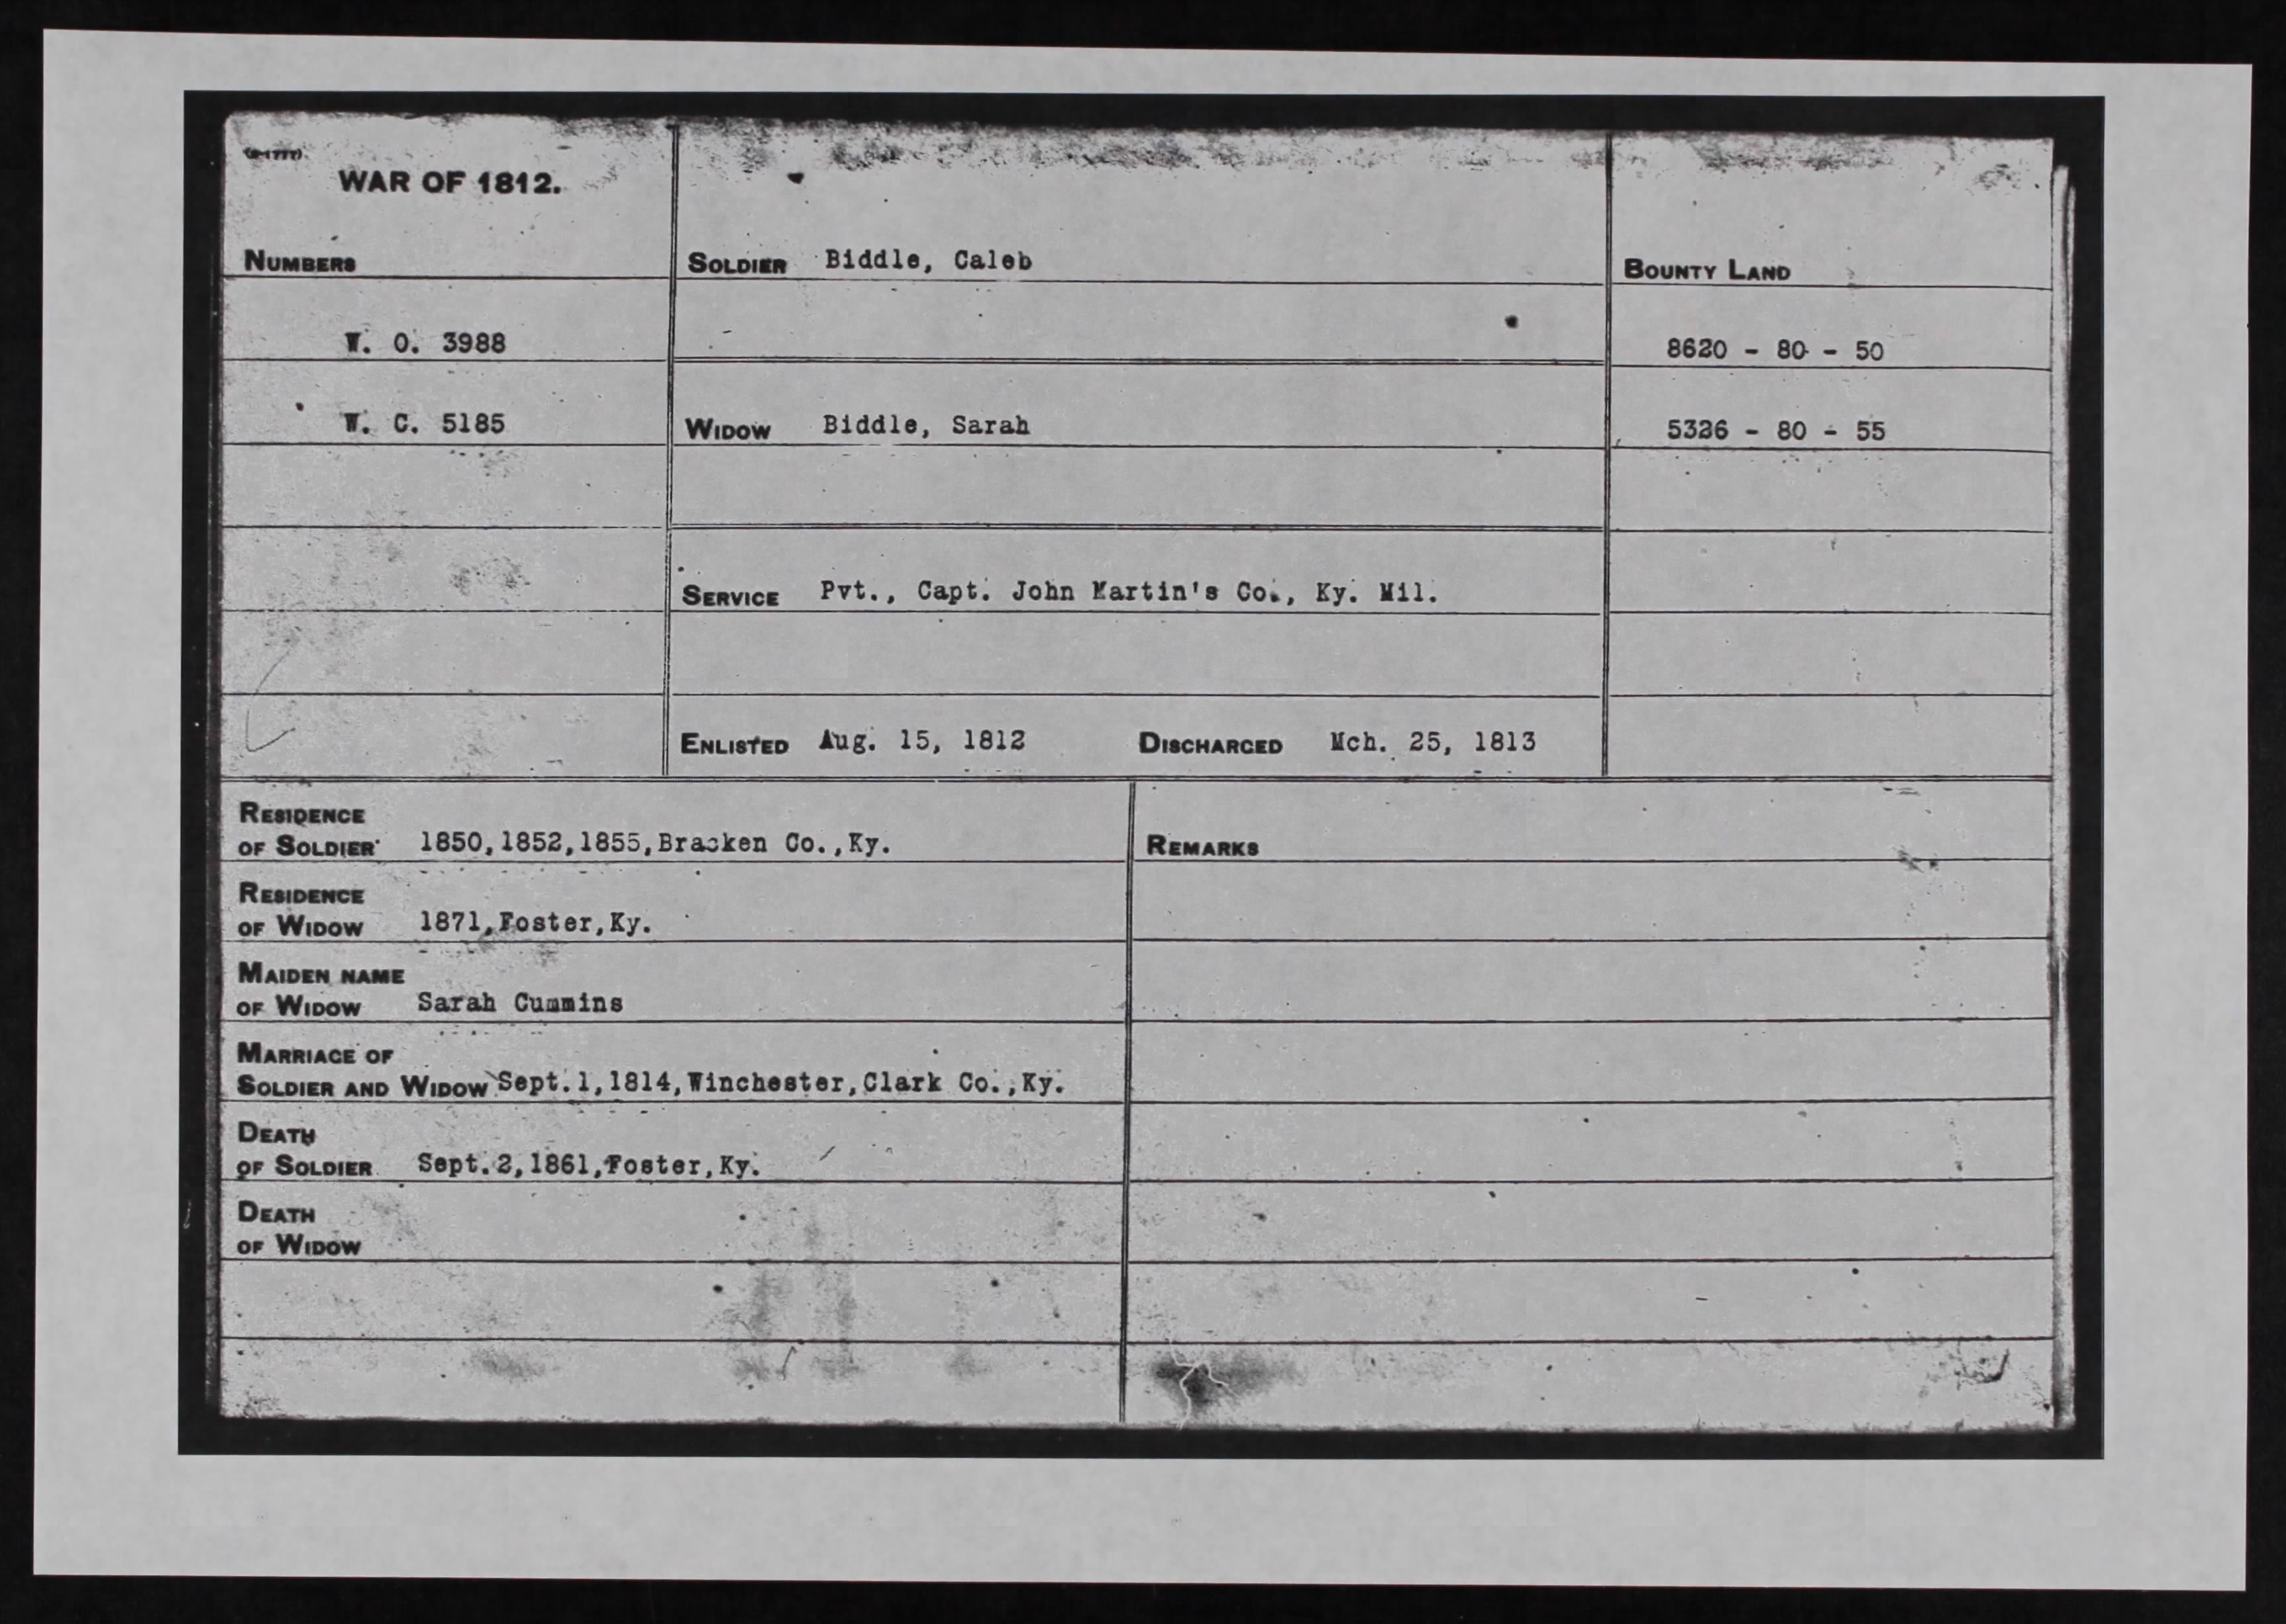 (3-1777)
WAR OF 1812.
NUMBERS
W. O. 3988
W. C. 5185
SOLDIER Biddle, Caleb
WIDOW Biddle, Sarah
SERVICE Pvt., Capt. John Martin's Co., Ky. Mil.
ENLISTED Aug. 15, 1812 DISCHARGED Mch. 25, 1813
BOUNTY LAND
8620 - 80 - 50
5326 - 80 - 55
RESIDENCE
OF SOLDIER 1850,1852,1855,Bracken Co.,Ky.
RESIDENCE
OF WIDOW 1871,Foster,Ky.
MAIDEN NAME
OF WIDOW Sarah Cummins
MARRIAGE OF
SOLDIER AND WIDOW Sept.1,1814,Winchester,Clark Co.,Ky.
DEATH
OF SOLDIER Sept.2,1861,Foster,Ky.
DEATH
OF WIDOW
REMARKS